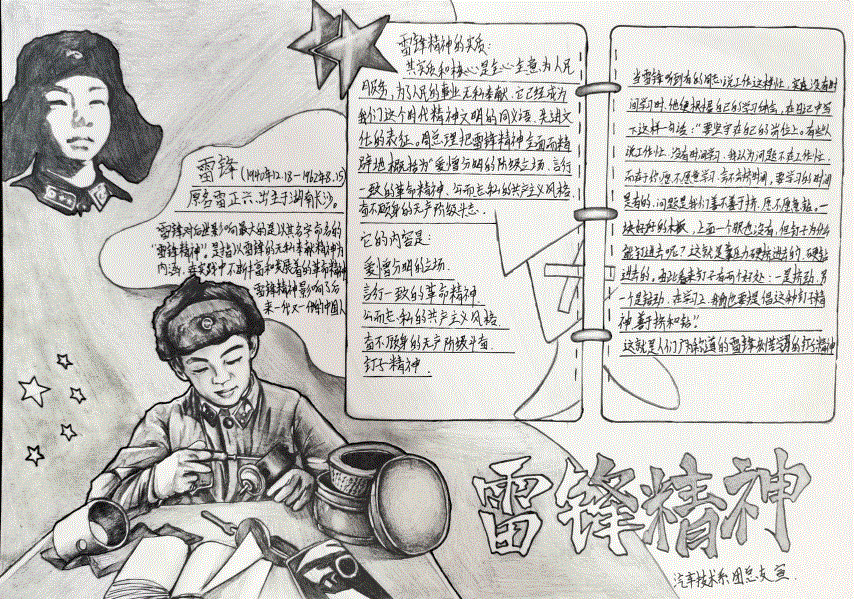 雷锋(1940.12.18-1962.8.15)
原名雷正兴,出生于湖南长沙。
雷锋对后世影响最大的是以其名字命名的
"雷锋精神"。是指以雷锋的无私奉献精神为
内涵,在实践中不断丰富和发展着的革命精神
雷锋精神影响了后
来一代又一代的中国人
雷锋精神的实质:
其实质和核心是全心全意为人民
服务,为了人民的事业无私奉献,它已经成为
我们这个时代精神文明的同义语、先进文
化的表征。周总理把雷锋精神全面而精
辟地概括为"爱憎分明的阶级立场、言行
一致的革命精神、公而忘私的共产主义风格、
奋不顾身的无产阶级斗志.
它的内容是:
爱憎分明的立场.
言行一致的革命精神.
公而忘私的共产主义风格.
奋不顾身的无产阶级斗奋.
钉子精神.
当雷锋听到有的同志说工作这样忙,实在没有时
间学习时,他便根据自己的学习体会,在日记中写
下这样一句话:"要坚守在自己的岗位上。有些人
说工作忙、没有时间学习.我认为问题不在工作忙,
而在于你愿不愿意学习,会不会挤时间,要学习的时间
是有的,问题是我们善不善于挤,愿不愿意钻。一
块好好的木板,上面一个眼也没有,但钉子为什么
能钉进去呢?这就是靠压力硬挤进去的,硬钻
进去的。由此看来钉子有两个好处:一是挤劲,另
一个是钻劲,在学习上,我们也要提倡这种钉子精
神,善于挤和钻."
这就是人们广为称道的雷锋刻苦学习的钉子精神
雷锋精神
汽车技术系团总支宣